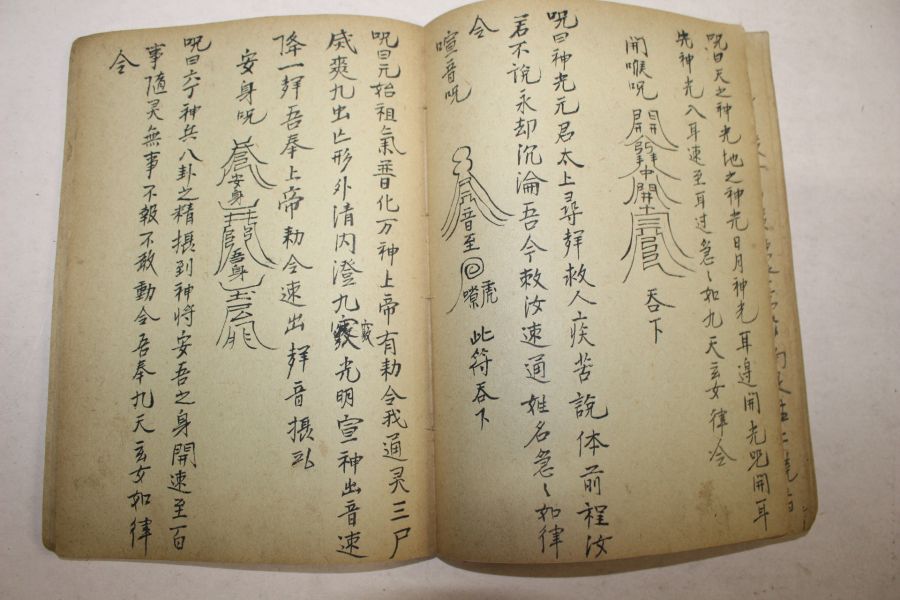 呪曰天之神光地之神光日月神光耳邉開光呪開耳
先神光入耳速至耳过急〻如九天玄女律令
開喉呪
吞下
呪曰神光元君太上尋聲救人疾苦說体前程汝
若不說永却沉淪吾今敕汝速通姓名急〻如律
令
喧音呪
音至
此符吞下
呪曰元始祖氣普化万神上帝有勅令我通灵三尸
爽九出亡形外清内澄九竅光明宣神出音速
降一聲吾奉上帝勅令速出聲音摄
安身呪
安身
吾身
呪曰六丁神兵八卦之精摄到神將安吾之身開速至百
事隨灵無事不報不敢動令吾奉九天玄女如律
令